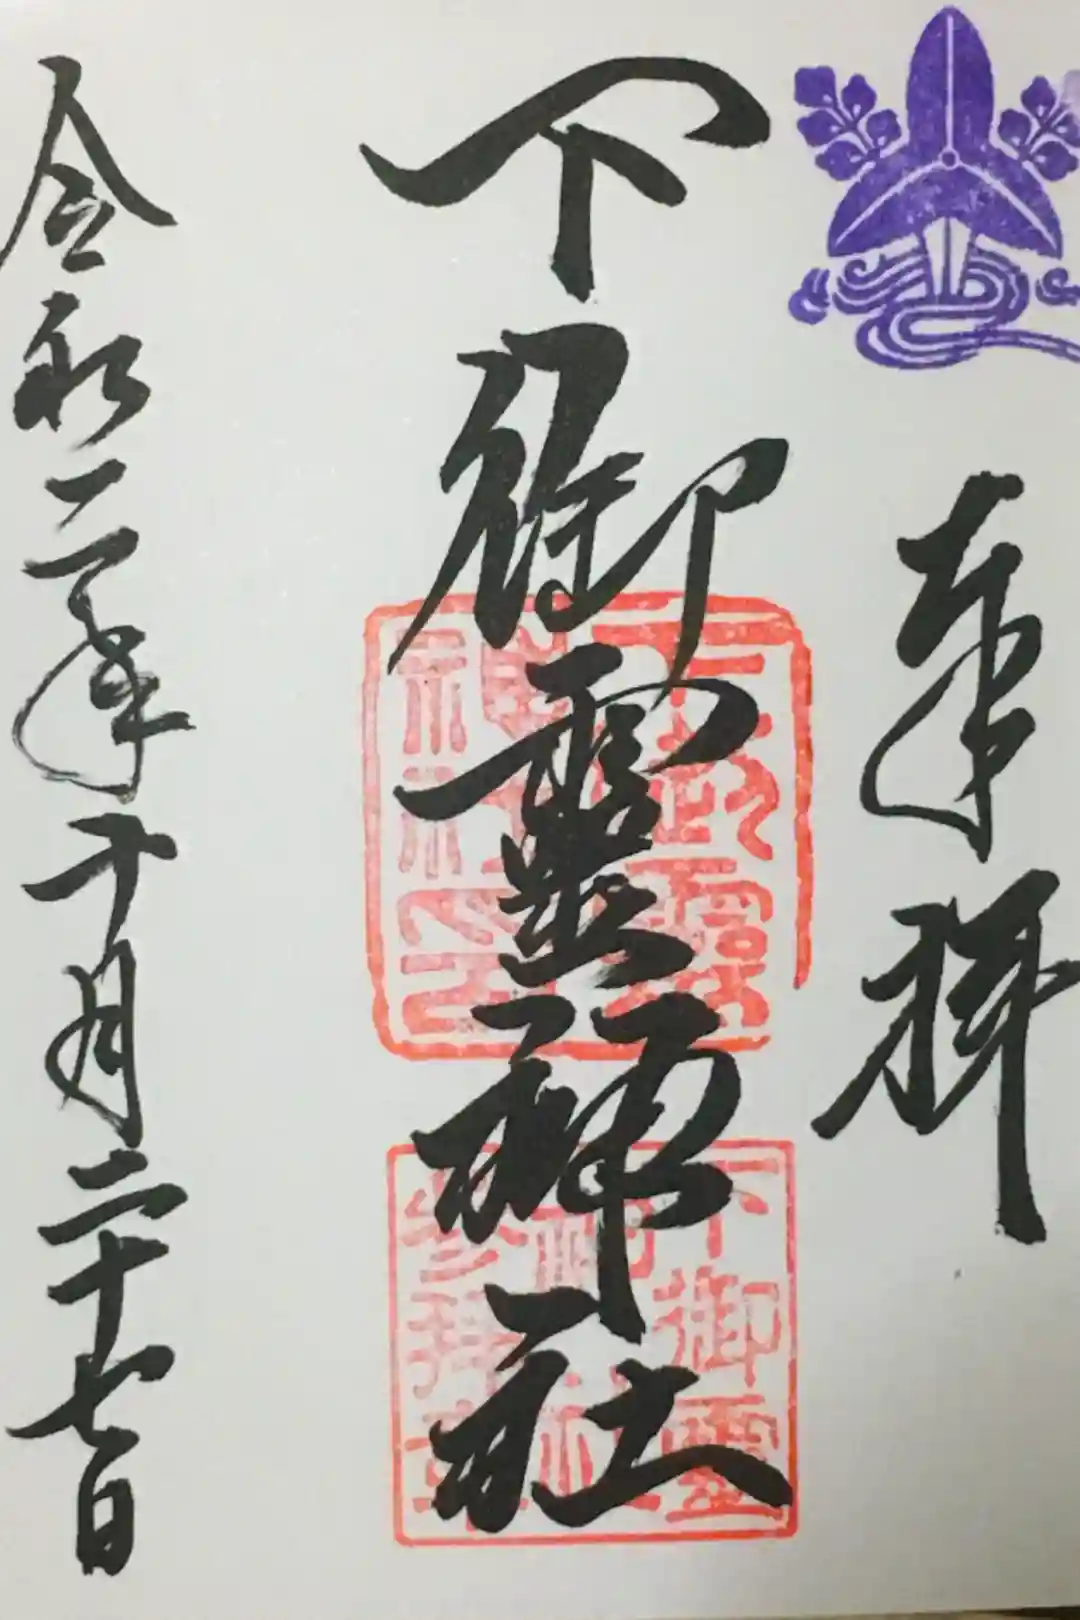 奉拝
下御靈神社
令和二年十月二十七日
下御霊
神社
参拝章